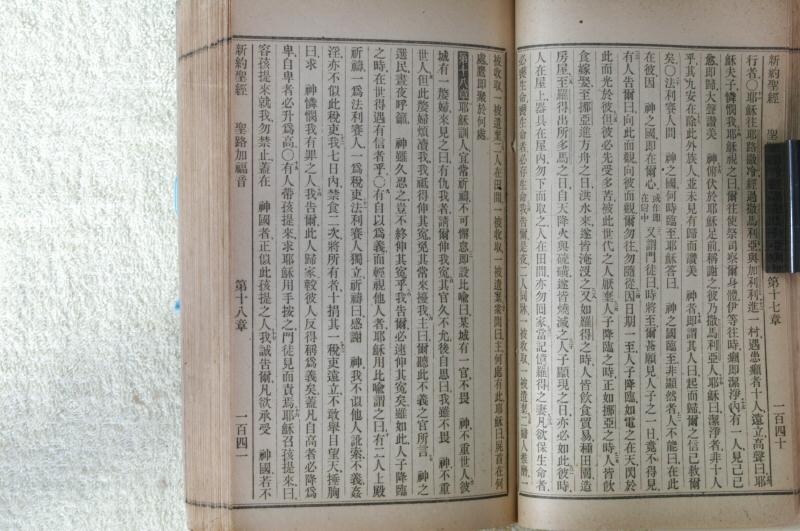 行者〇耶穌往耶路撒冷經過撒馬利亞與加利利進一村遇患癩者十人遠立高聲曰耶
穌夫子憐憫我耶穌視之曰爾往使祭司察爾身體伊等往時癩即潔淨內有一人見己已
愈即歸大聲讚美 神俯伏於耶穌足前稱謝之彼乃撒馬利亞人耶穌曰潔淨者非十人
乎其九安在除此外族人並未見有歸而讚美 神者即謂其人曰起而歸爾之信已救爾
矣〇法利賽人問 神之國何時臨至耶穌答曰 神之國臨至非顯然者人不能曰在此
在彼因 神之國即在爾心又謂門徒曰時將至爾甚願見人子之一日竟不得見
有人告爾曰向此面觀向彼面觀爾勿往勿隨從因日期一至人子降臨如電之在天閃於
此面光於彼但彼必先受多苦被此世代之人厭棄人子降臨之時正如挪亞之時人皆飲
食嫁娶至挪亞進方舟之日洪水來遂皆淹沒之又如羅得之時人皆飲食貿易種田園造
房屋至羅得出所多馬之日自天降火與硫磺遂皆燒滅之人子顯現之日亦必如此彼時
人在屋上器具在屋內勿下面取之人在田間亦勿回家當記憶羅得之妻凡欲保生命者
必喪生命喪生命者必存生命我告爾是夜二人同牀一被收取一被遺棄二婦人推磨一
新約聖經 第十七章 一百四十
被收取一被遺棄二人在田間一被收取一被遺棄眾問曰主何處有此耶穌曰屍首在何
處鷹即聚於何處
第十八章 耶穌訓人宜常祈禱不可懈怠即設比喻曰某城有一官不畏 神不重世人彼
城有一嫠婦來見之曰有仇我者請爾伸我冤其官久不允後自思曰我雖不畏 神不重
世人但此嫠婦煩瀆我我祗得伸其冤免其常來擾我主曰爾聽此不義之官所言 神之
選民晝夜呼籲 神雖久忍之豈不終伸其冤乎我告爾必速伸其冤矣雖如此人子降臨
之時在世得遇有信者乎〇有自以為義而輕視他人者耶穌用比喻謂之曰有二人上殿
祈禱一為法利賽人一為稅吏法利賽人獨立祈禱曰感謝 神我不似他人訛索不義姦
淫亦不似此稅吏我七日內禁食二次將所有者十捐其一稅吏遠立不敢舉目望天捶胸
曰求 神憐憫我有罪之人我告爾此人歸家較彼人反得稱為義矣蓋凡自高者必降為
卑自卑者必升為高〇有人帶孩提來求耶穌用手按之門徒見而責焉耶穌召孩提來曰
容孩提來就我勿禁止蓋在 神國者正似此孩提之人我誠告爾凡欲承受 神國若不
新約聖經 聖路加福音 第十八章 一百四一